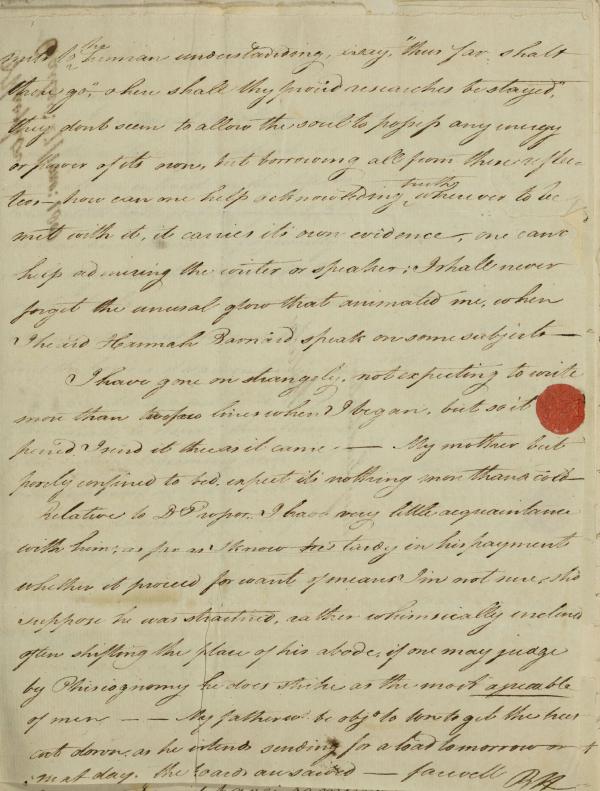 to the human understanding, say, "thus far shalt
thou go", "here shall thy proud researches be stayed",
they dont seem to allow the soul to possess any energy
or power of its own, but borrowing all from these
how can one help acknowledging truth wherever to be
met with it, it carries its own evidence, one cant
help admiring the writer or speaker; I shall never
forget the unusal glow that animated me, when
I heard Hannah Barnard speak on some subjects —
I have gone on strangely, not expecting to write
more than lines when I began, but so it
I send it thee as it came — My mother but
porely confined to bed. expect its nothing more than a cold
Relative to D. I have very little acquaintance
with him; as far as I know he tardy in his payment
whether it proceed for want of means I'm not sure, shd
suppose he was straitned, rather whimsically inclined
often shifting the place of his abode, if one may judge
by Phisiognomy he does strike as the most agreeable
of men — — My father wd. be objd. to get the trees
cut down, as he intends sending for a load tomorrow or
next day. the are sawed — farewell